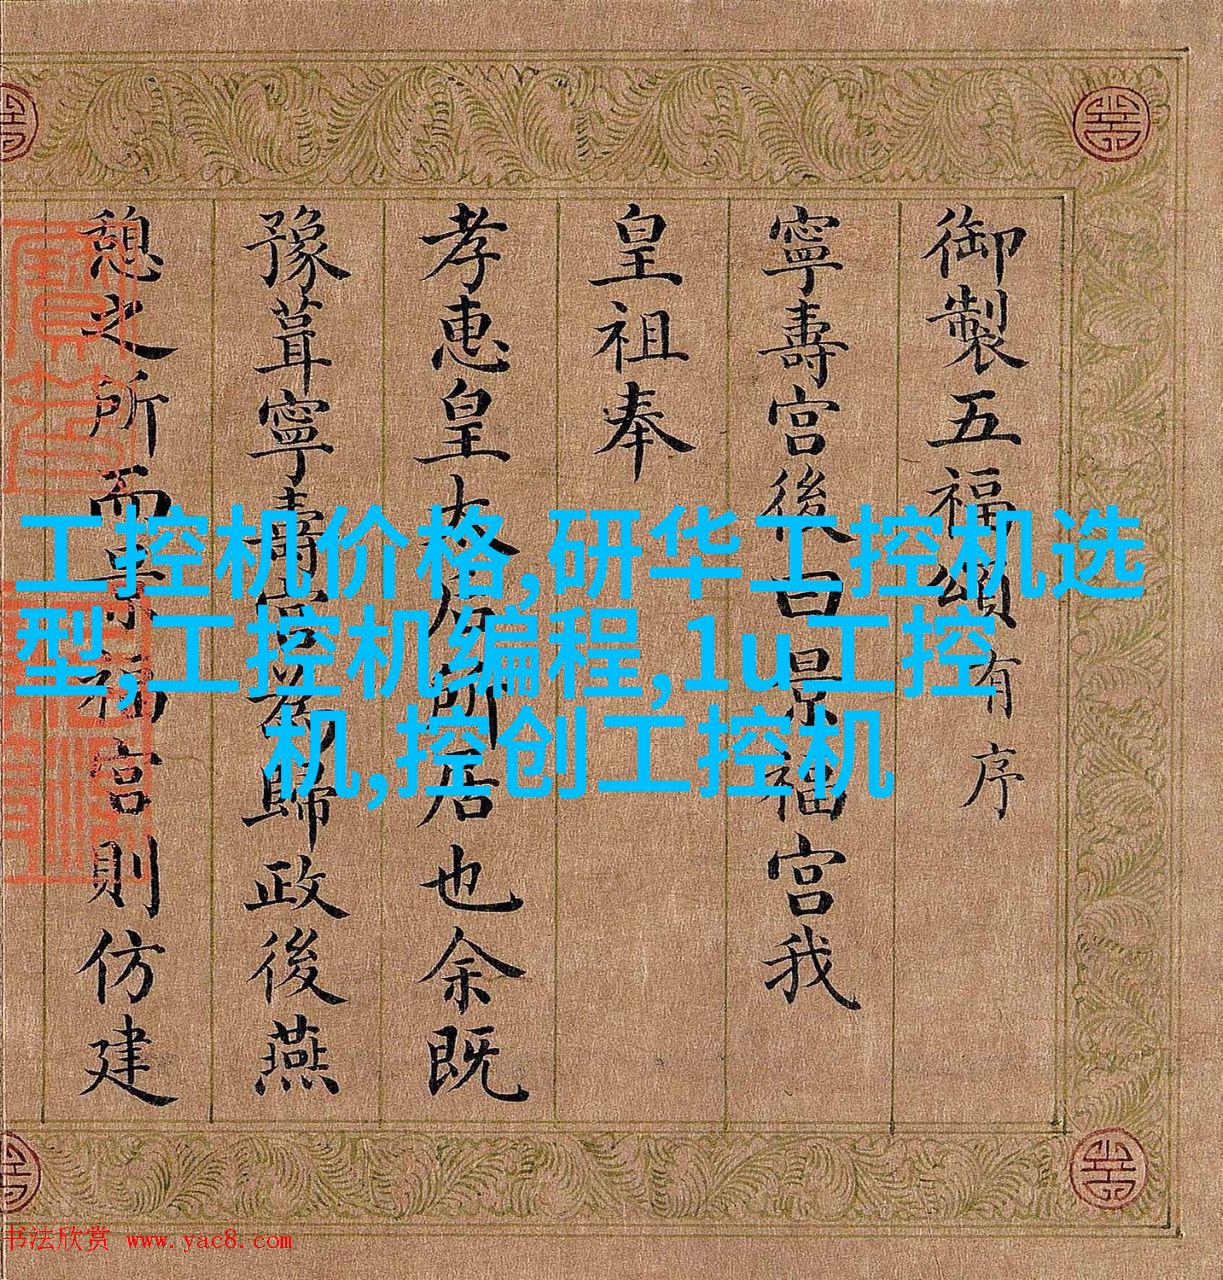 御製五福頌有序
寧壽宮後曰景福宮我
皇祖奉
孝惠皇太后所居也余既
豫葺寧壽宮為歸政後燕
憩之所而景福宮則仿建
工控机价格,研华工控机选
型,工控机编程,1u工控
机,控创工控机
书法欣赏 www.yac8.com